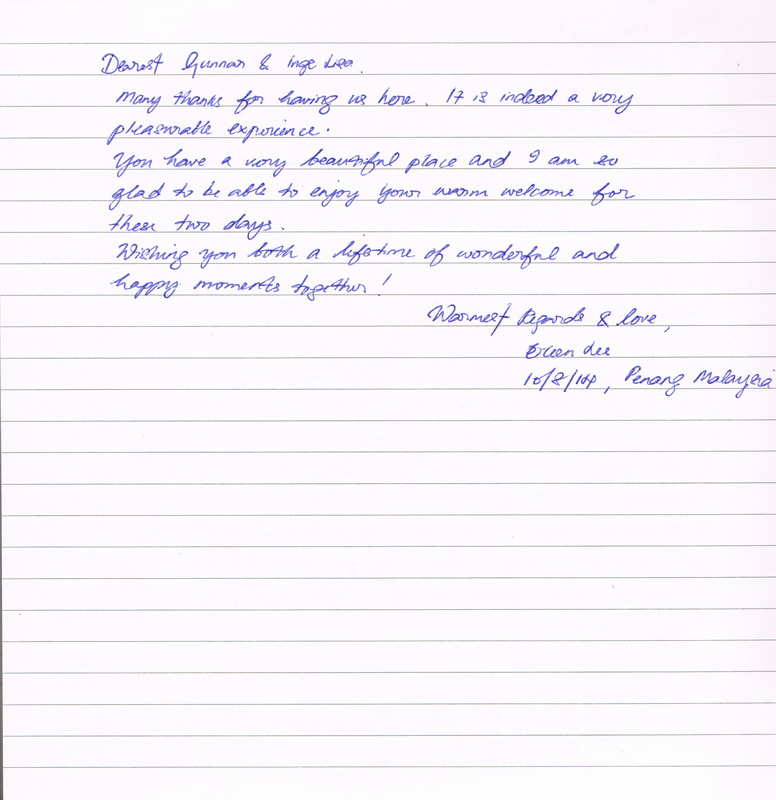 Dearest Gunnar & Inge Lisa.
Many thanks for having us here. It is indeed a very
pleasurable experience.
You have a very beautiful place and I am so
glad to be able to enjoy your warm welcome for
these two days.
Wishing you both a lifetime of wonderful and
happy moments together!
Warmest Regards & love,
Eileen Lee
10/8/14, Penang Malaysia